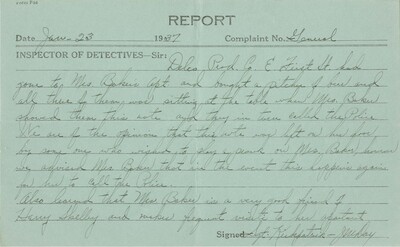 REPORT
Date Jan - 23 1937 Complaint No. General
INSPECTOR OF DETECTIVES—Sir:
Dales Prod. Co. E First St had
gone to Mrs Bakers Apt and bought a
are there by them, was sitting at the table when Mrs. Baker
showed them this note and they in turn called the Police
We are of the opinion that this note was left on her door
by some one who wished to play a prank on Mrs. Baker, however
we advised Mrs Baker that in the event this happens again
to call the Police.
Also learned that Mrs Baker is a very good friend of
Harry and makes frequent visits to her apartment
Signed